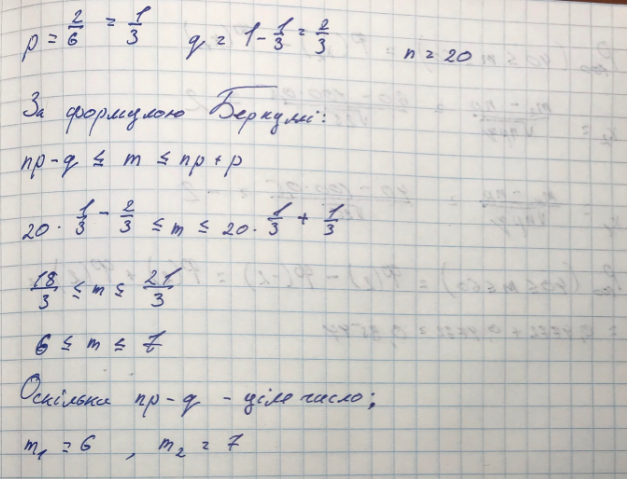 p = 2/6 = 1/3 q = 1 - 1/3 = 2/3 n = 20
За формулою Бернуллі:
np - q ≤ m ≤ np + p
20 · 1/3 - 2/3 ≤ m ≤ 20 · 1/3 + 1/3
18/3 ≤ m ≤ 21/3
6 ≤ m ≤ 7
Оскільки np - q - ціле число;
m₁ = 6 , m₂ = 7